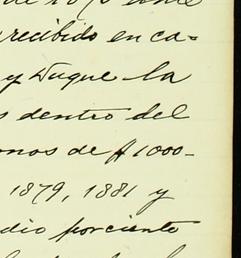 recibido en ca=
y Duque la
s dentro del
onos de $1000-
1879, 1881 y
dio porciento